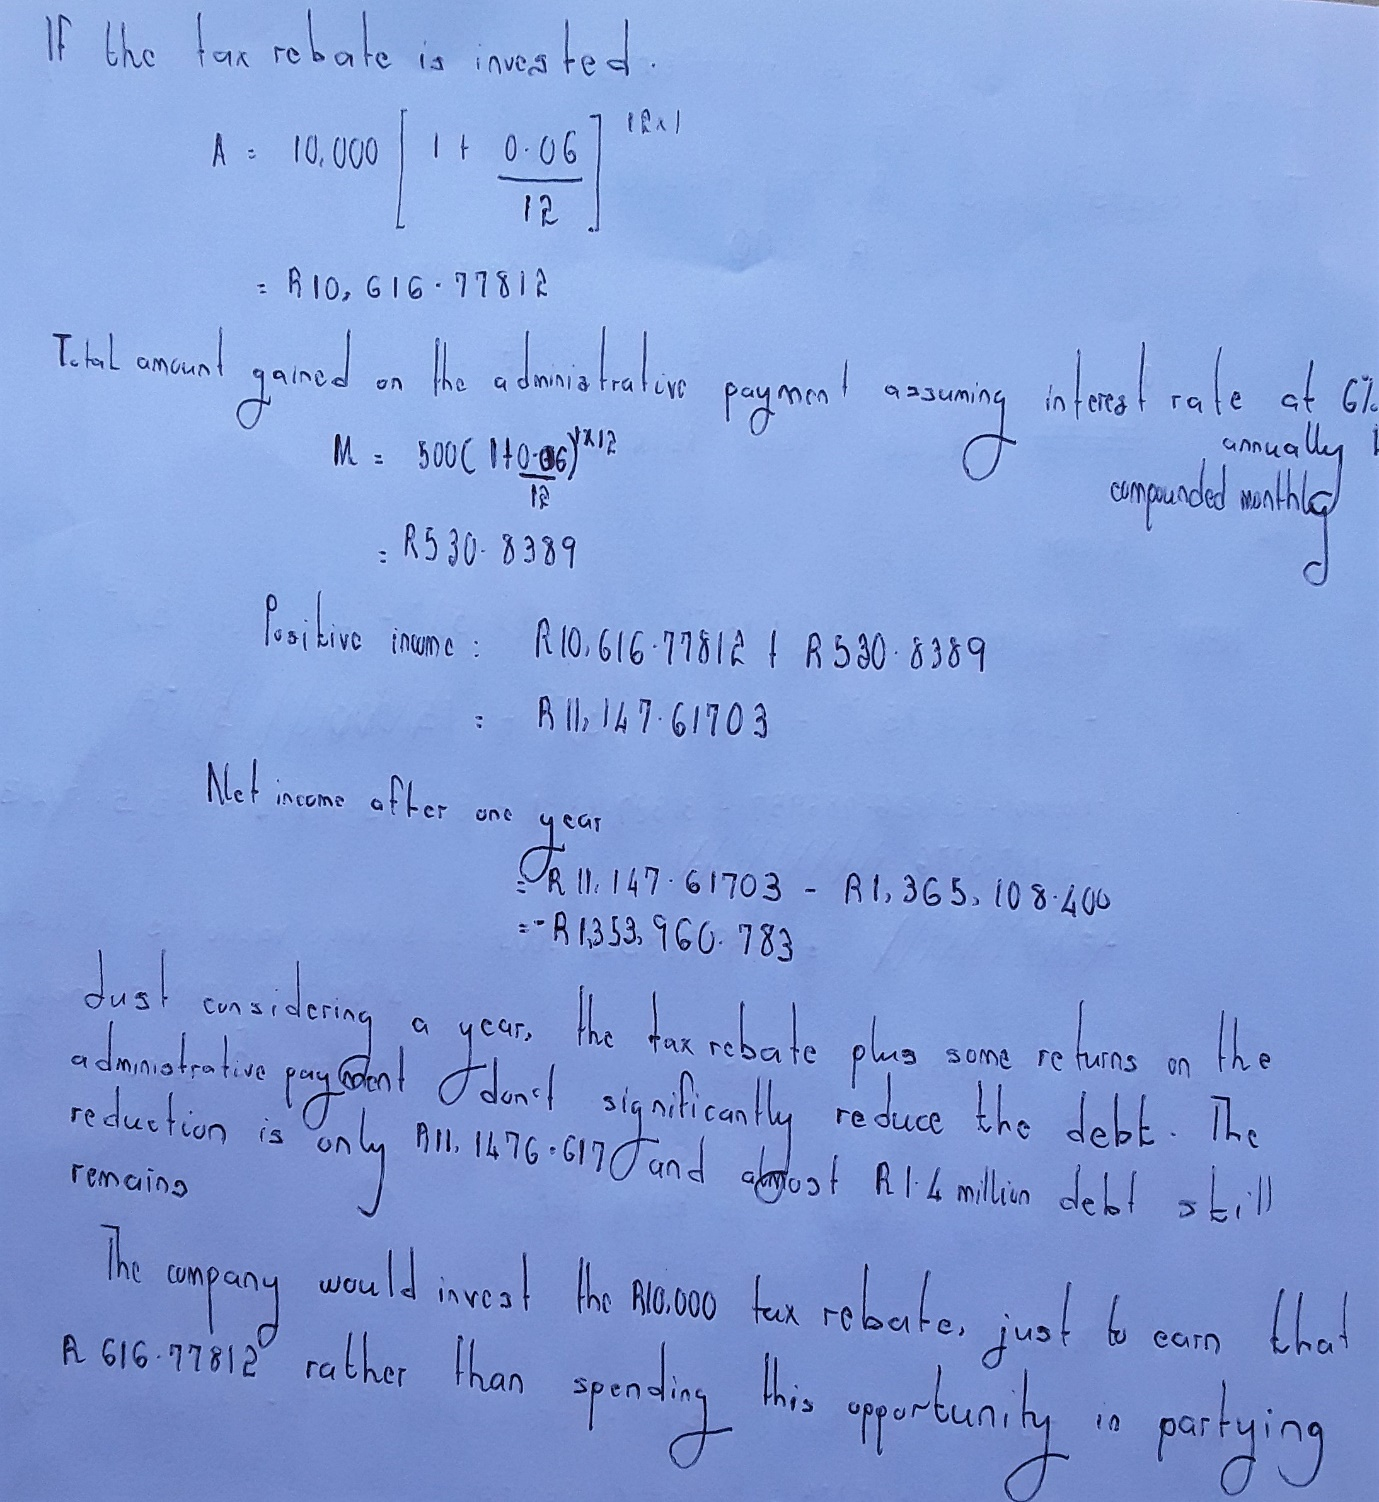 If the tax rebate is invested.
A = 10,000 [ 1 + 0.06 / 12 ] 12x1
= R10,616.77812
Total amount gained on the administrative payment assuming interest rate at 6%
annually
compounded monthly
M = 500( 1+0.06 / 12 )1x12
= R530.8389
Positive income : R10,616.77812 + R530.8389
= R11,147.61703
Net income after one year
= R11,147.61703 - R1,365,108.400
= -R1,353,960.783
Just considering a year, the tax rebate plus some returns on the
administrative payment don't significantly reduce the debt. The
reduction is only R11,1476.617 and almost R1.4 million debt still
remains
The company would invest the R10,000 tax rebate, just to earn that
R616.77812 rather than spending this opportunity in partying